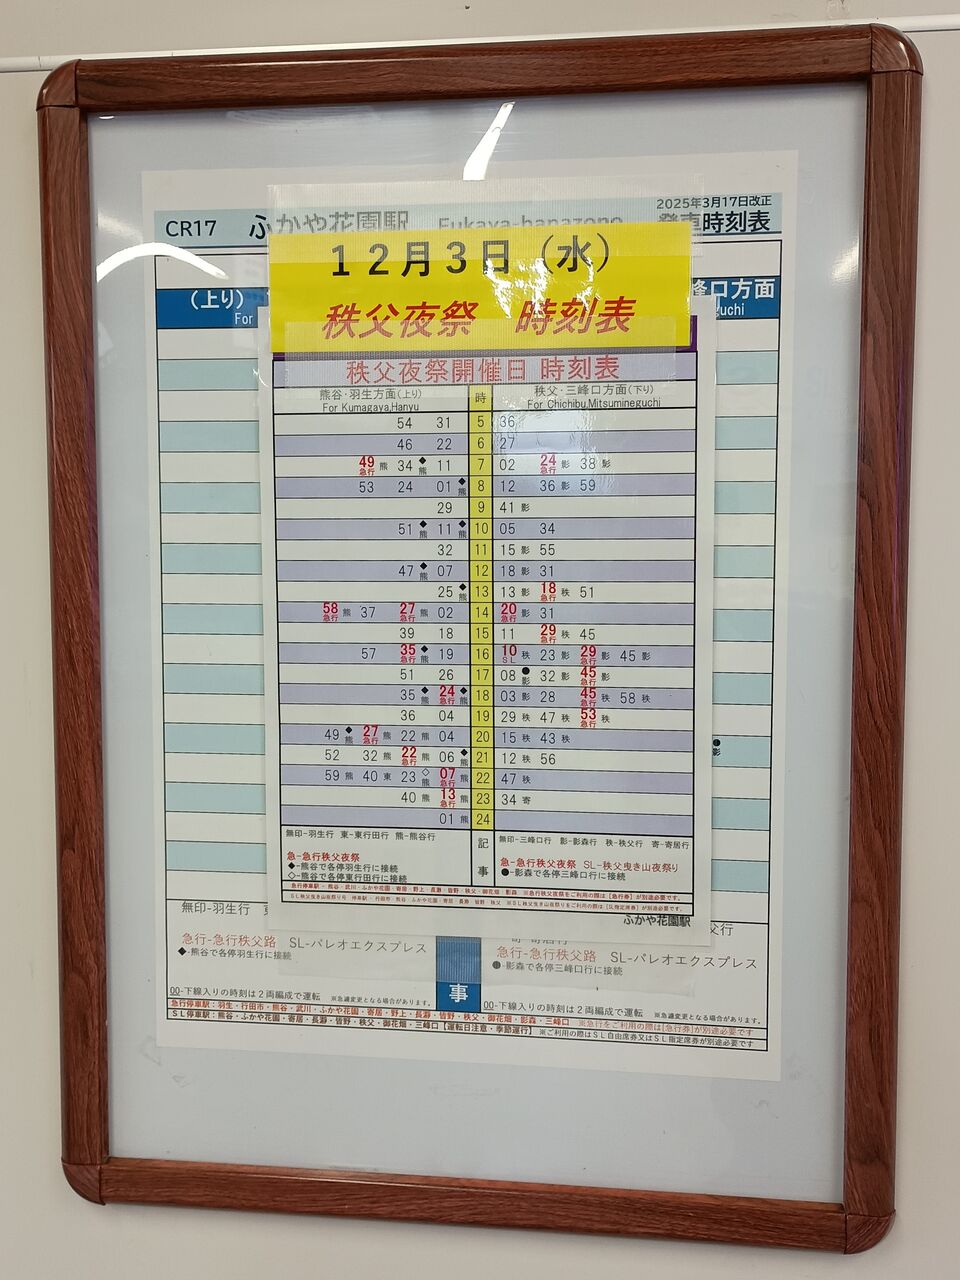 2025年3月17日改正
CR17 ふかや花園駅 Fukaya-hanazono 発車時刻表
12月3日（水）
秩父夜祭 時刻表
（上り） 峰口方面
For guchi
秩父夜祭開催日 時刻表
熊谷・羽生方面(上り) 時 秩父・三峰口方面(下り)
For Kumagaya,Hanyu For Chichibu,Mitsumineguchi
54 31 5 36
46 22 6 27
49急行 熊 34 ◆熊 11 7 02 24急行 影 38 影
53 24 01 ◆熊 8 12 36 影 59
29 9 41 影
51 ◆熊 11 ◆熊 10 05 34
32 11 15 影 55
47 ◆熊 07 12 18 影 31
25 ◆熊 13 13 影 18急行 秩 51
58急行 熊 37 27急行 熊 02 14 20急行 影 31
39 18 15 11 29急行 秩 45
57 35急行 ◆熊 19 16 10SL 秩 23 影 29急行 影 45 影
51 26 17 08 ●影 32 影 45急行 影
35 ◆熊 24急行 ◆熊 18 03 影 28 45急行 秩 58 秩
36 04 19 29 秩 47 秩 53急行 秩
49 ◆熊 27急行 熊 22 熊 04 20 15 秩 43 秩
52 32 熊 22急行 熊 06 ◆熊 21 12 秩 56
59 熊 40 東 23 ◇熊 07急行 熊 22 47 秩
40 熊 13急行 熊 23 34 寄
01 熊 24
●影
無印-羽生行 東-東行田行 熊-熊谷行 記事 無印-三峰口行 影-影森行 秩-秩父行 寄-寄居行
急-急行秩父夜祭 急-急行秩父夜祭 SL-秩父曳き山夜祭り
◆-熊谷で各停羽生行に接続 ●-影森で各停三峰口行に接続
◇-熊谷で各停東行田行に接続
急行停車駅・熊谷・武川・ふかや花園・寄居・野上・長瀞・皆野・秩父・御花畑・影森 ※急行秩父夜祭をご利用の際は【急行券】が別途必要です。
ふかや花園駅
無印-羽生行
急行-急行秩父路 SL-パレオエクスプレス 事 急行-急行秩父路 SL-パレオエクスプレス
◆-熊谷で各停羽生行に接続 ●-影森で各停三峰口行に接続
00-下線入りの時刻は2両編成で運転 ※急遽変更となる場合があります。 00-下線入りの時刻は2両編成で運転 ※急遽変更となる場合があります。
急行停車駅：羽生・行田市・熊谷・武川・ふかや花園・寄居・野上・長瀞・皆野・秩父・御花畑・影森・三峰口 ※急行をご利用の際は【急行券】が別途必要です
SL停車駅：熊谷・ふかや花園・寄居・長瀞・皆野・秩父・御花畑・三峰口【運転日注意・季節運行】 ※ご利用の際はSL自由席券又はSL指定席券が別途必要です